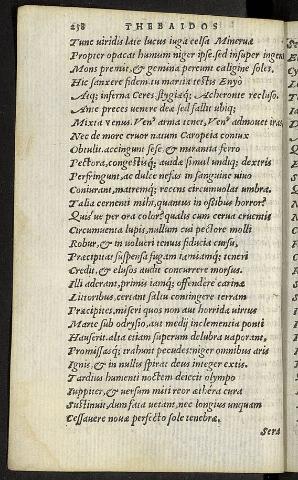 258 THEBAIDOS
Tunc uiridis late lucus iuga celsa Mineruæ
Propter opacat humum niger ipse, sed insuper ingens
Mons premit, & gemina pereunt caligine soles.
Hic sanxere fidem, tu martia testis Enyo
Atq; inferna Ceres, stygiaq; Acheronte recluso.
Ante preces uenere deæ sed fallit ubiq;
Mixta Venus. Venꝰ arma tenet, Venꝰ admouet iras.
Nec de more cruor natum Caropeia coniux
Obtulit. accingunt sese, & mirantia ferro
Pectora, congestisq; auidæ simul undiq; dextris
Perfringunt, ac dulce nefas in sanguine uiuo
Coniurant, matremq; recens circumuolat umbra.
Talia cernenti mihi, quantus in ossibus horror?
Quis'ue per ora color? qualis cum cerua cruentis
Circumuenta lupis, nullum cui pectore molli
Robur, & in uolucri tenuis fiducia cursu,
Præcipitat suspensa fugam iamiamq; teneri
Credit, & elusos audit concurrere morsus.
Illi aderant, primis iamq; offendere carinæ
Littoribus, certant saltu contingere terram
Præcipites, miseri quos non aut horrida uirtus
Marte sub odrysio, aut medij inclementia ponti
Hauserit. alta etiam superum delubra uaporant,
Promissasq; trahunt pecudes: niger omnibus aris
Ignis, & in nullis spirat deus integer extis.
Tardius humenti noctem deiecit olympo
Iuppiter, & uersum miti reor æthera cura
Sustinuit, dum fata uetant, nec longius unquam
Cessauere nouæ perfecto sole tenebræ.
Sera